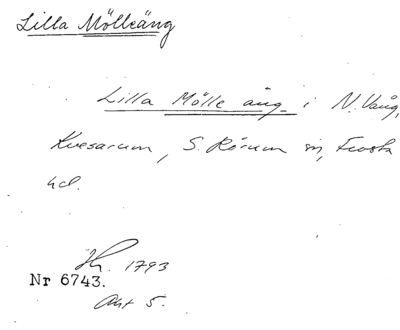 Lilla Mölleäng
Lilla Mölle äng i N. Vång,
Kvesarum, S. Rörum sn, Frosta
hd.
1793
Nr 6743.
Akt 5.